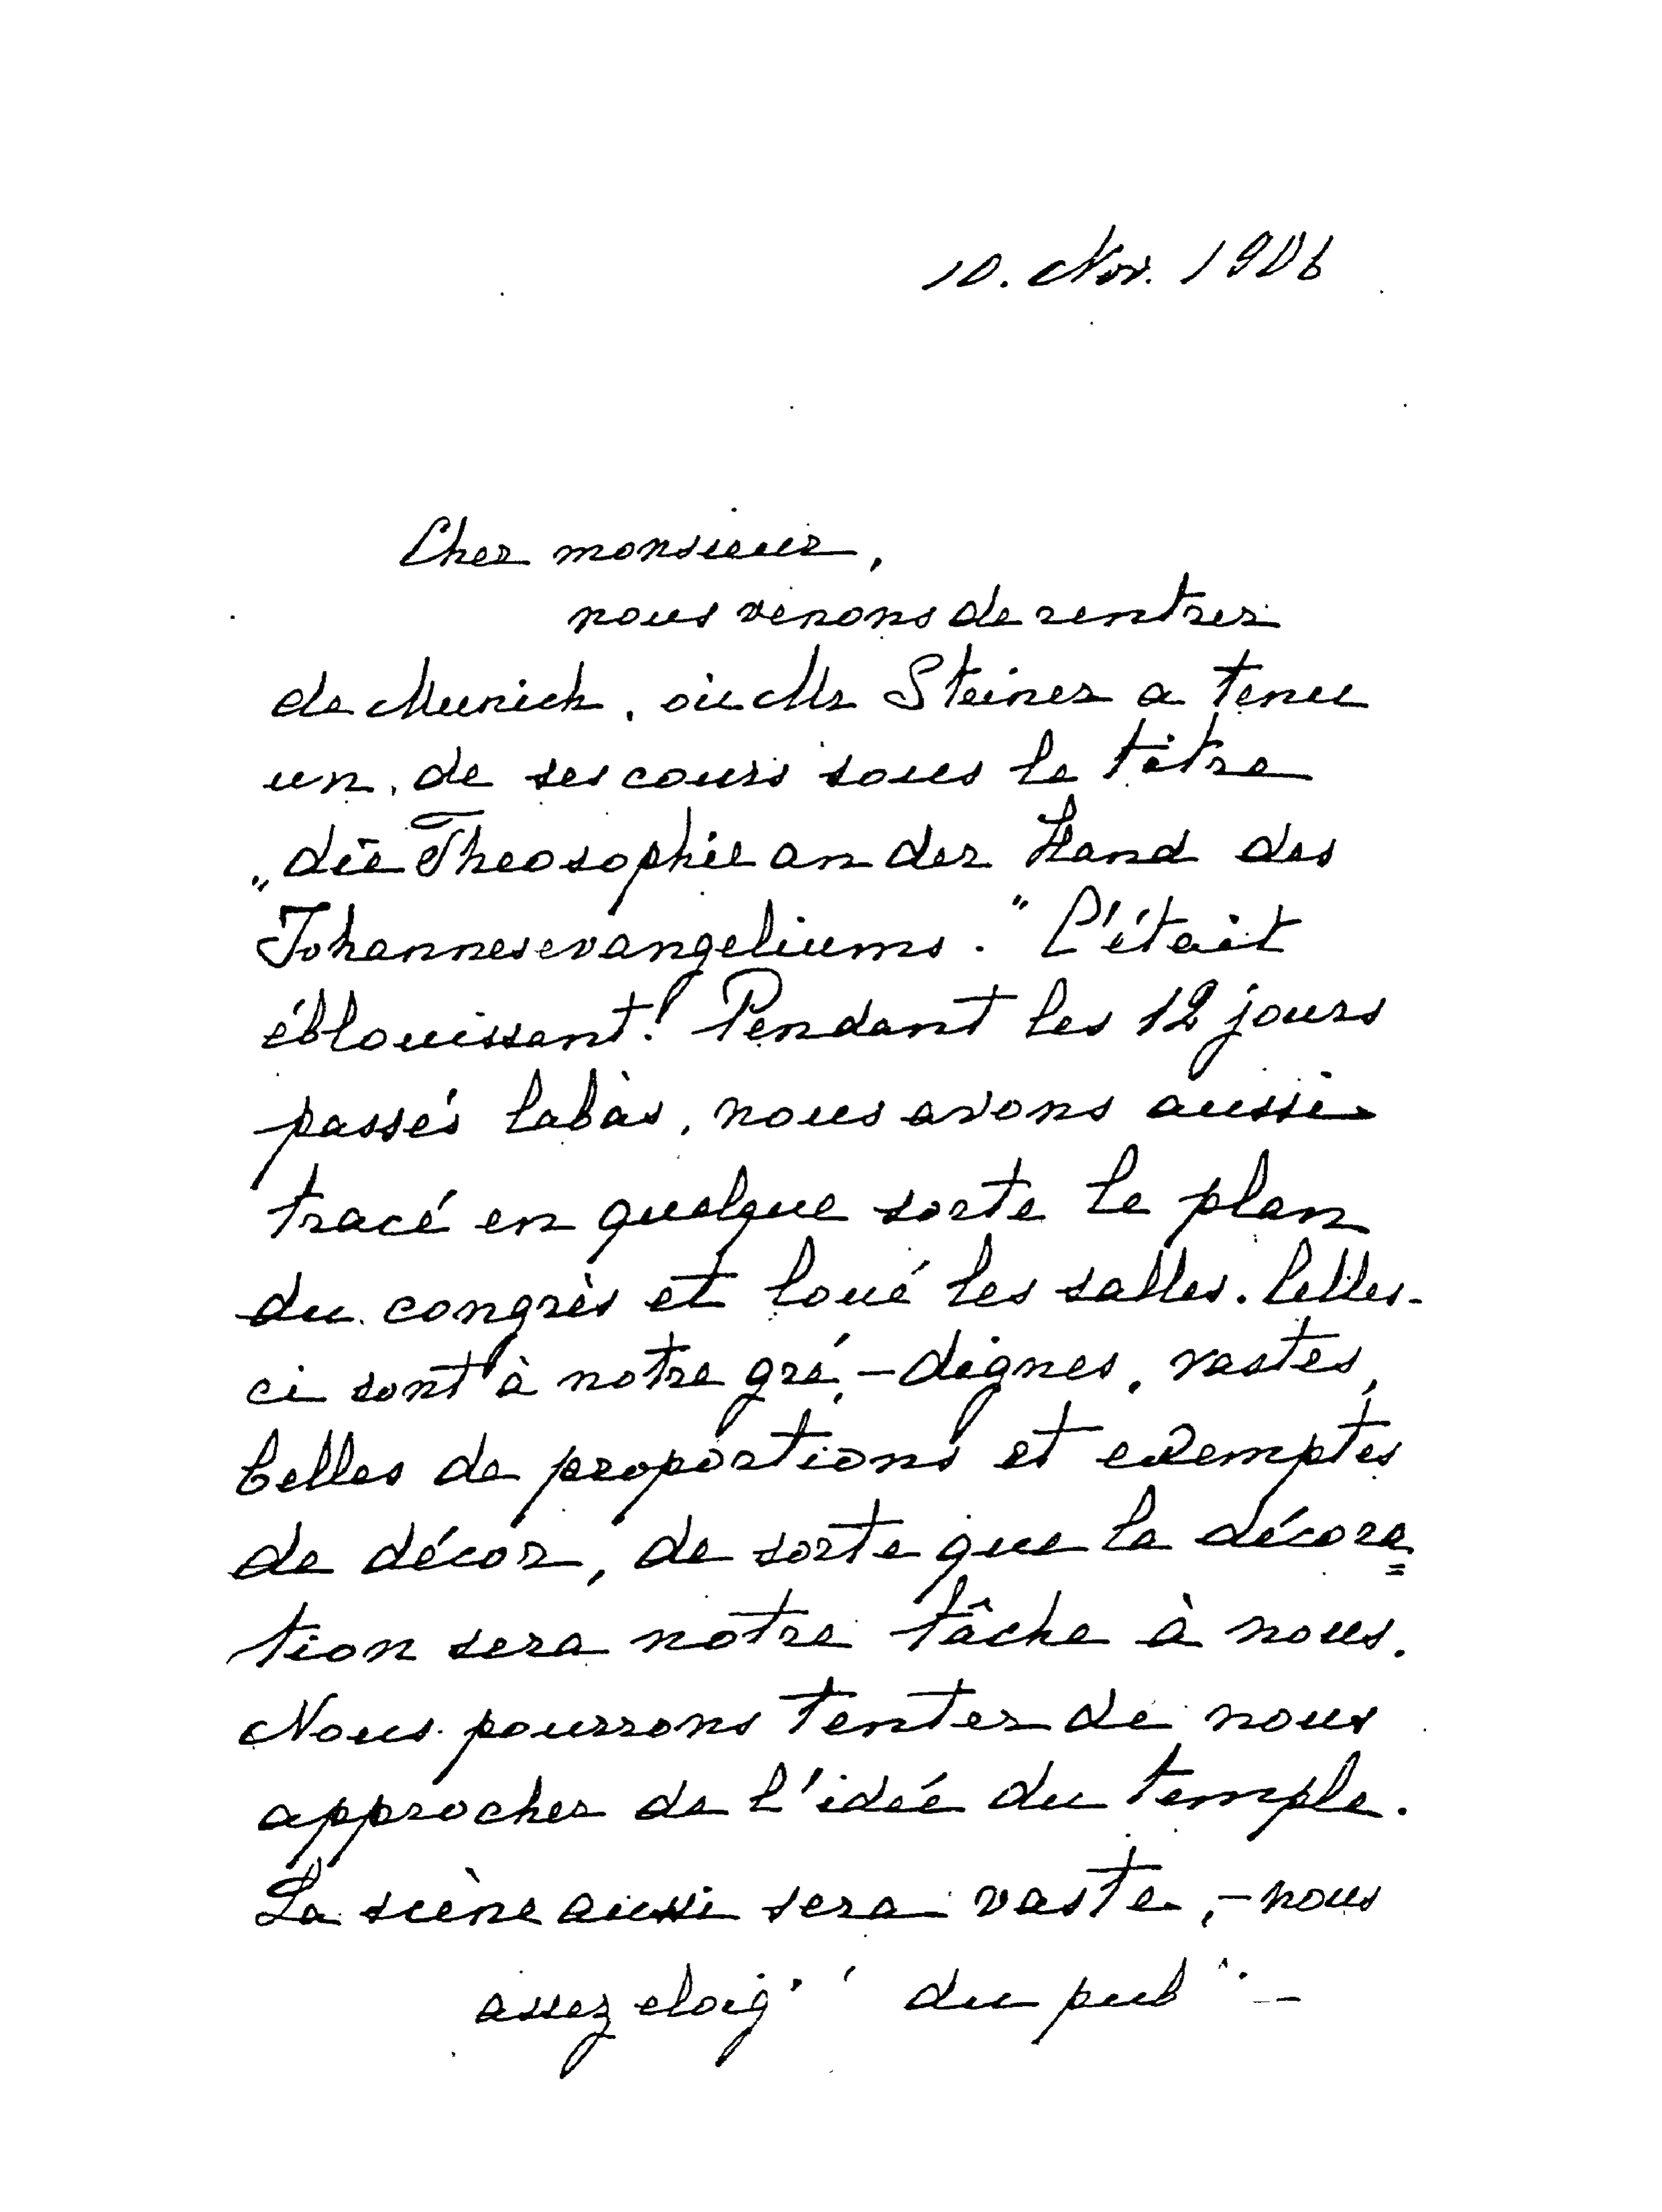 10. Nov. 1906
Cher monsieur,
nous venons de rentrer
de Munich, où Mr Steiner a tenu
un de ses cours sous le titre
„die Theosophie an der Hand des
Johannesevangeliums." C'était
éblouissant! Pendant les 12 jours
passés labàs, nous avons aussi
tracé en quelque sorte le plan
du congrès et loué les salles. Celles-
ci sont à notre gré, – dignes, vastes,
belles de proportions et exemptes
de décor, de sorte que la décora=
tion sera notre tâche à nous.
Nous pourrons tenter de nous
approcher de l'idée du temple.
La scène aussi sera vaste, – nous
assez du